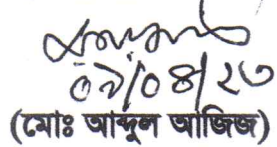 ০৯/০৪/২৩
(মোঃ আব্দুল আজিজ)